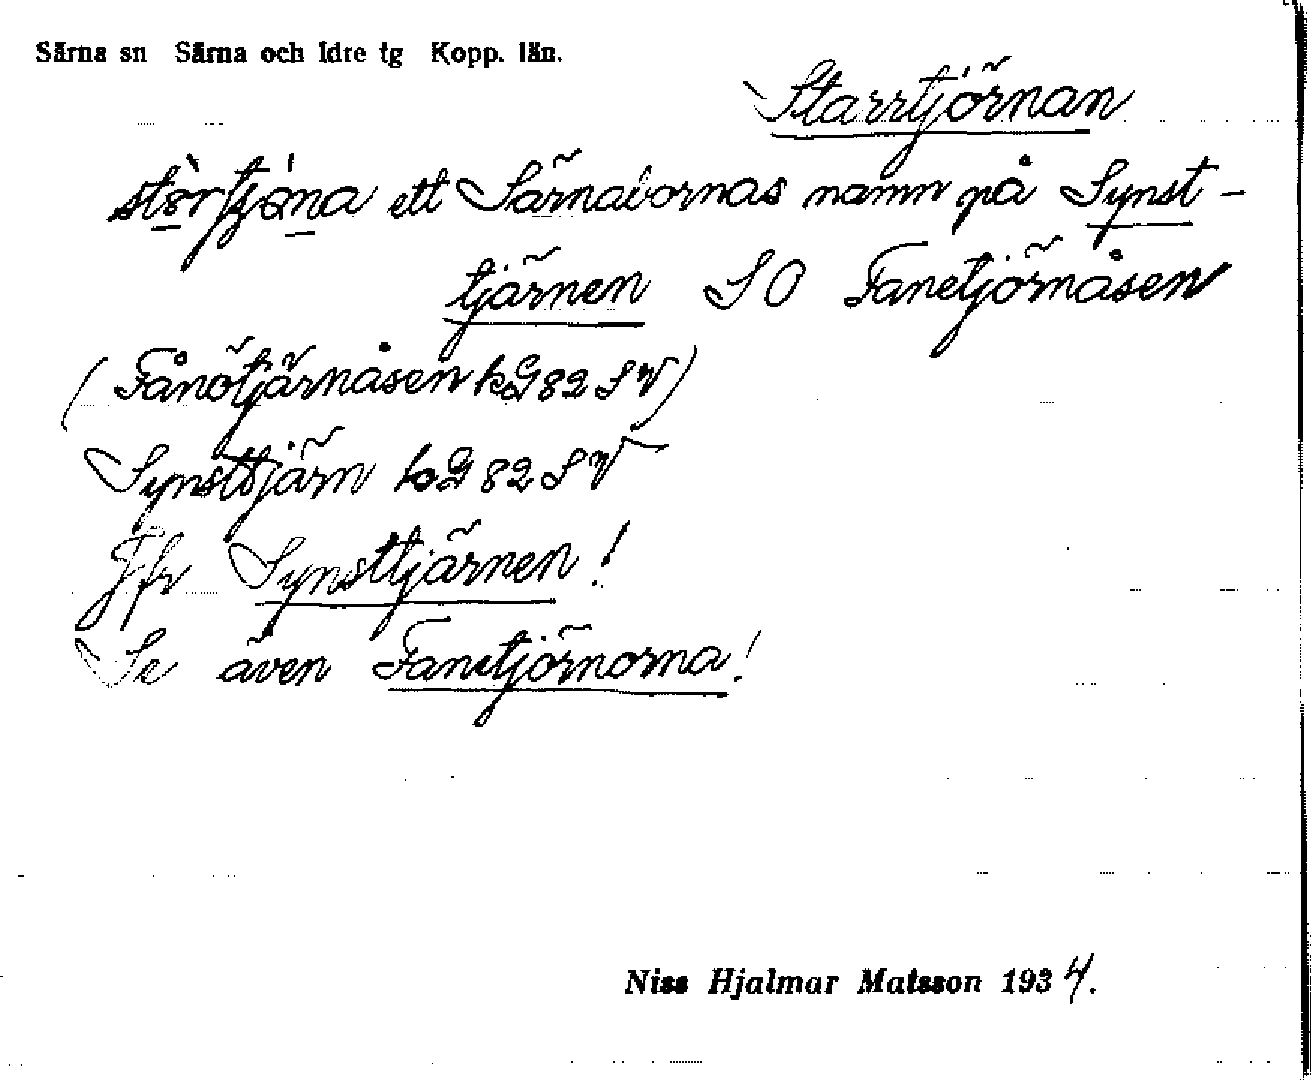 Särna sn Särna och Idre tg Kopp. län.
Starrtjörnan
ett Särnabornas namn på Synst-
tjärnen SO Fanetjörnåsen
(Fånötjärnåsen kG 82 SV)
Synsttjärn kG 82 SV
Jfr Synsttjärnen!
Se även Fanetjörnorna!
Niss Hjalmar Matsson 1934.